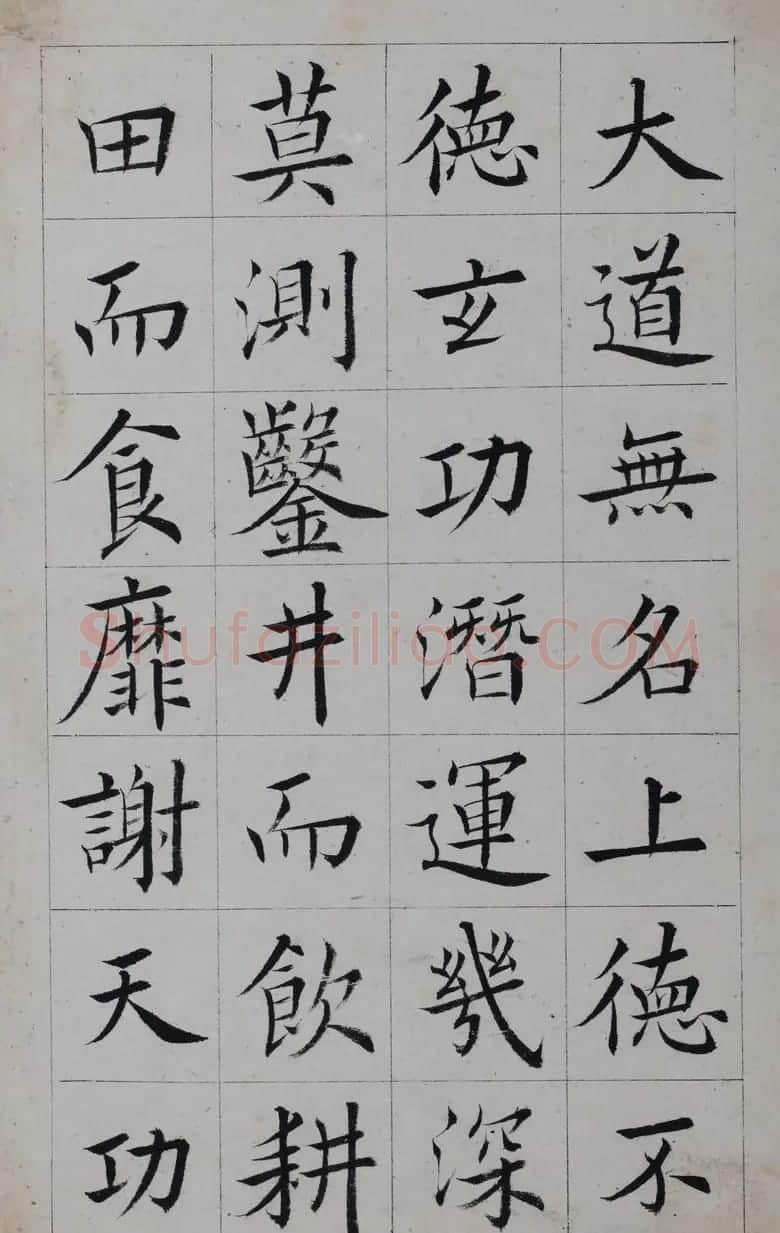 大道無名上德不
德玄功潛運幾深
莫測鑿井而飲耕
田而食靡謝天功
Shufaziliao.COM